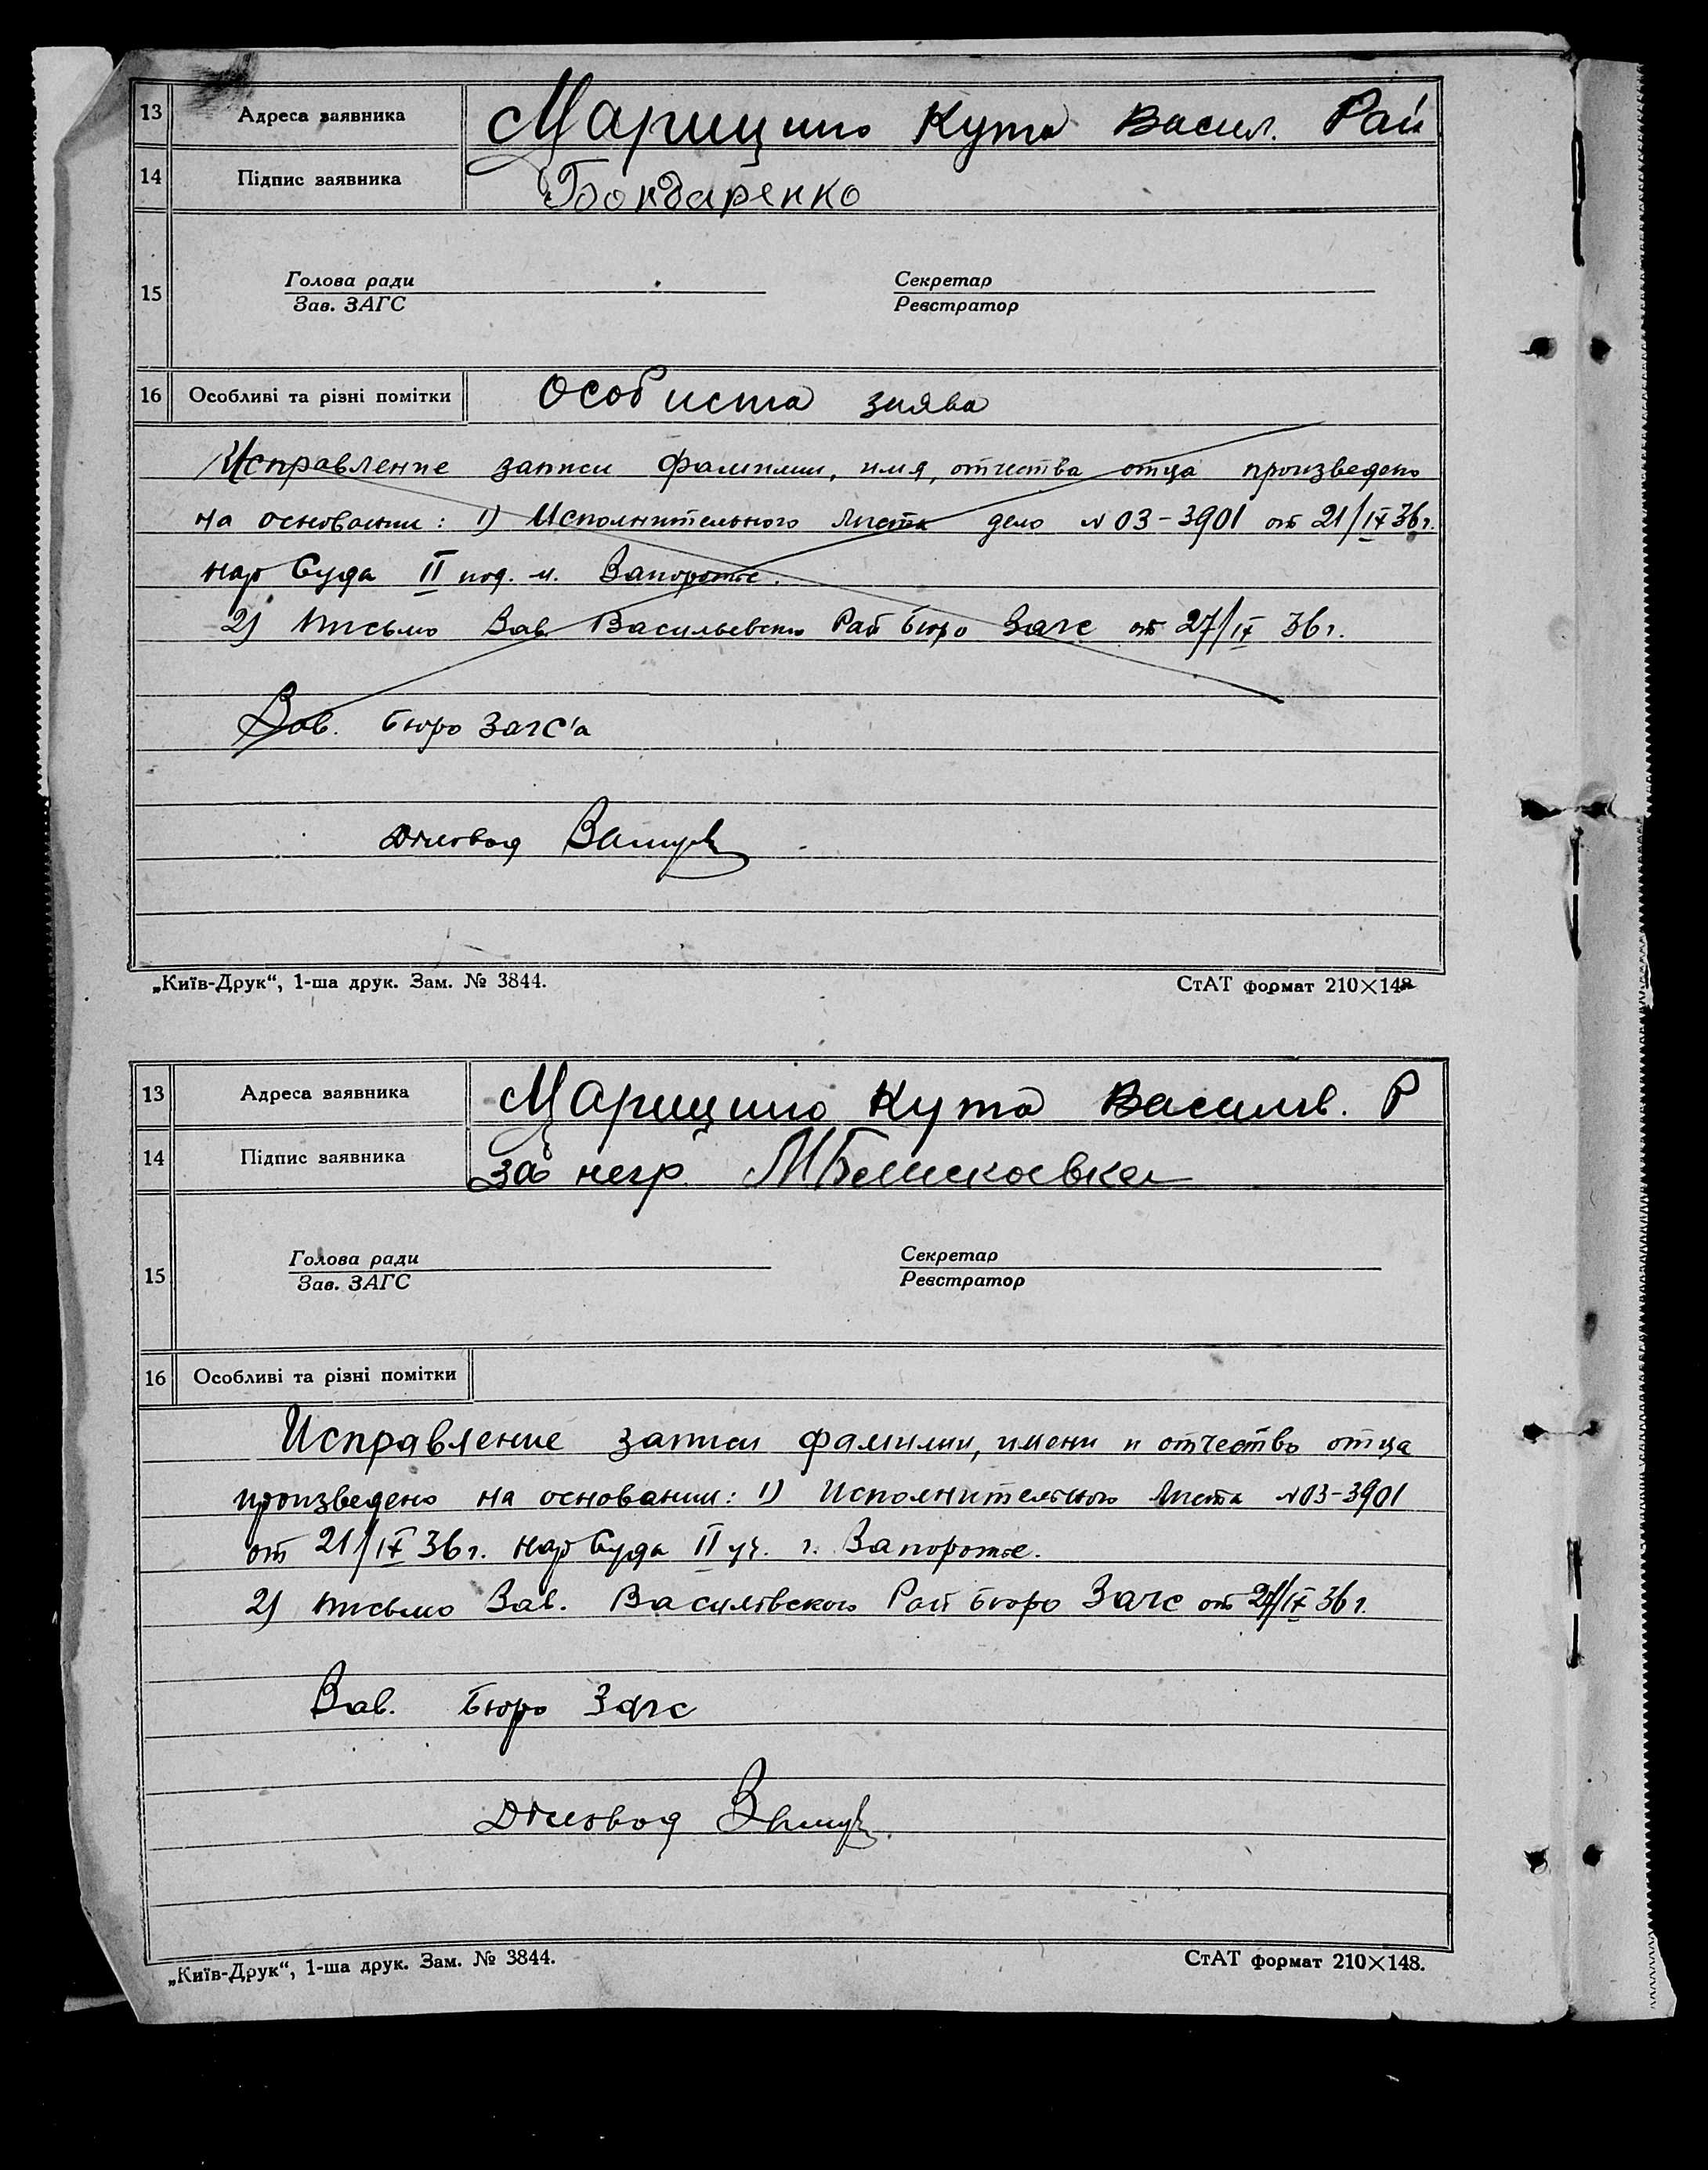 13 Адреса заявника Марицино Кута Васил. Рай
14 Підпис заявника Бондаренко
15 Голова ради Секретар
Зав. ЗАГС Реєстратор
16 Особливі та різні помітки Особиста заява
Исправление записи фамилии, имя, отчества отца произведено
на основании: 1) Исполнительного листа дело №03-3901 от 21/IX 36г.
нар Суда II м. Запорожье.
2) письмо Зав. Васильевско Рай бюро Загс от 27/IX 36г.
Зав. бюро Загс'а
Діловод
„Київ-Друк“, 1-ша друк. Зам. № 3844. СтАТ формат 210×148
13 Адреса заявника Марицино Кута Васильв. Р
14 Підпис заявника за негр.
15 Голова ради Секретар
Зав. ЗАГС Реєстратор
16 Особливі та різні помітки
Исправление записи фамилии, имени и отчество отца
произведено на основании: 1) Исполнительного листа №03-3901
от 21/IX 36г. нар Суда II уч. г. Запорожье.
2) письмо Зав. Василівского Рай бюро Загс от 27/IX 36г.
Зав. бюро Загс
Діловод
„Київ-Друк“, 1-ша друк. Зам. № 3844. СтАТ формат 210×148.